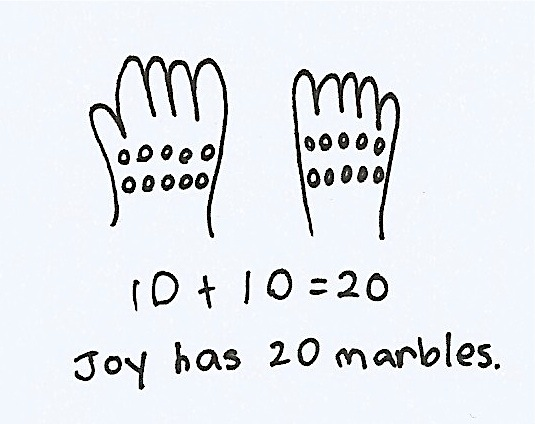 10 + 10 = 20
Joy has 20 marbles.